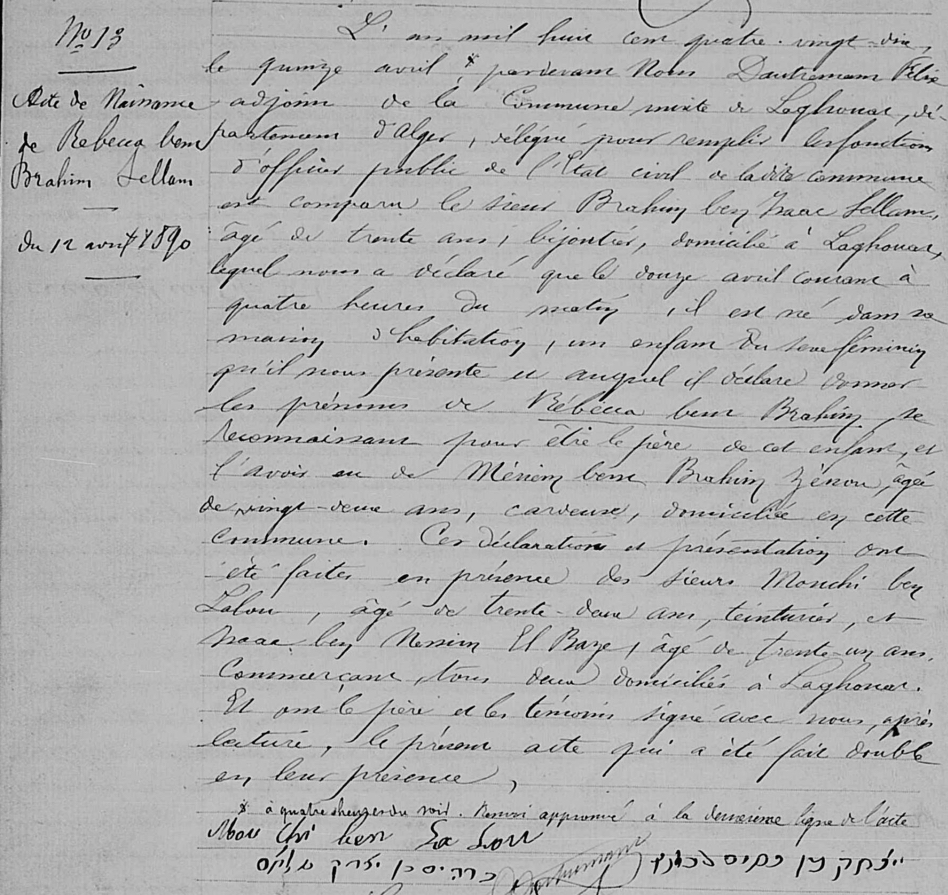 No 13
Acte de Naissance
de Rebecca bent
Brahim Sellam
du 12 avril 1890
L'an mil huit cent quatre-vingt-dix,
le quinze avril * pardevant Nous Dautremam Félix
adjoint de la Commune mixte de Laghouat, dé-
partement d'Alger, délégué pour remplir les fonctions
d'officier public de l'État civil de la dite commune
est comparu le sieur Brahim ben Isaac Sellam,
âgé de trente ans, bijoutier, domicilié à Laghouat,
lequel nous a déclaré que le douze avril courant à
quatre heures du matin, il est né dans sa
maison d'habitation, un enfant du sexe féminin
qu'il nous présente et auquel il déclare donner
les prénoms de Rebecca bent Brahim, se
reconnaissant pour être le père de cet enfant, et
l'avoir eu de Mériem bent Brahim Zénou, âgée
de vingt-deux ans, cardeuse, domiciliée en cette
commune. Ces déclaration et présentation ont
été faites en présence des sieurs Mouchi ben
Lalou, âgé de trente-deux ans, teinturier, et
Isaac ben Nessim El Baze, âgé de trente-un ans,
Commerçant, tous deux domiciliés à Laghouat.
Et ont le père et les témoins signé avec nous, après
lecture, le présent acte qui a été fait double
en leur présence,
* à quatre heures du soir. Renvoi approuvé à la deuxième ligne de l'acte
Mou chi ben La Lou